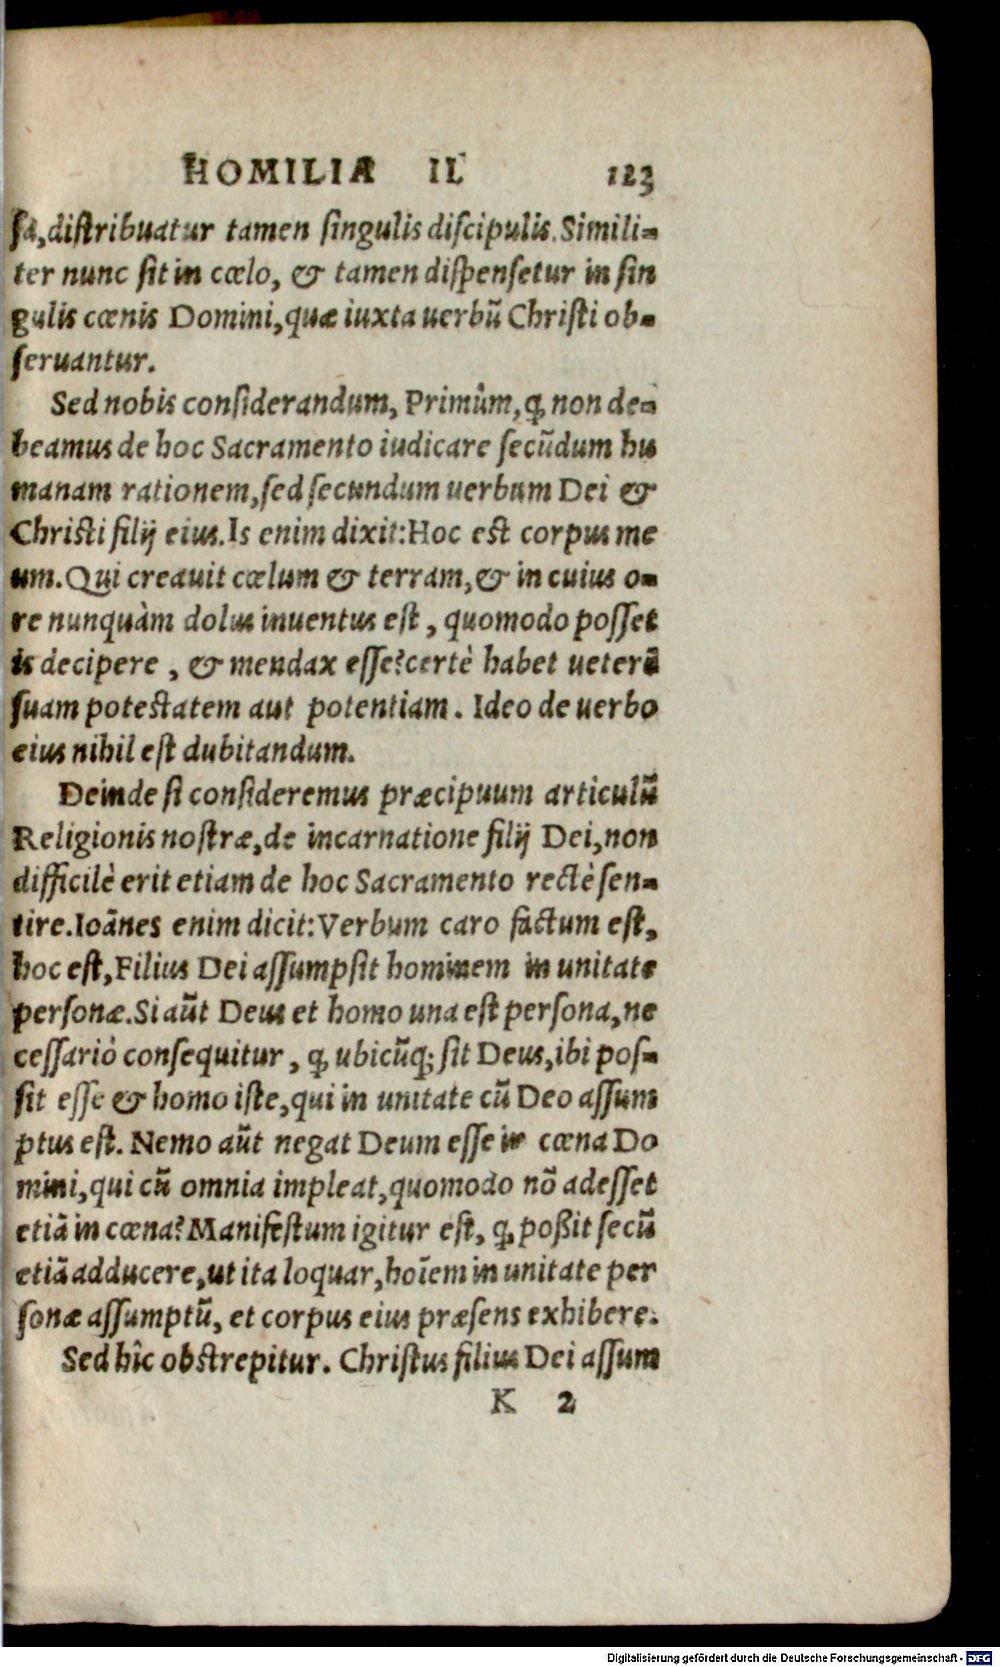 HOMILIÆ II. 123
sa, distribuatur tamen singulis discipulis. Simili-
ter nunc sit in cœlo, & tamen dispensetur in sin
gulis cœnis Domini, quæ iuxta uerbũ Christi ob-
seruantur.
Sed nobis considerandum, Primùm, ꝙ non de-
beamus de hoc Sacramento iudicare secũdum hu
manam rationem, sed secundum uerbum Dei &
Christi filij eius. Is enim dixit: Hoc est corpus me
um. Qui creauit cœlum & terram, & in cuius o-
re nunquàm dolus inuentus est, quomodo posset
is decipere, & mendax esse? certè habet ueterẽ
suam potestatem aut potentiam. Ideo de uerbo
eius nihil est dubitandum.
Deinde si consideremus præcipuum articulũ
Religionis nostræ, de incarnatione filij Dei, non
difficilè erit etiam de hoc Sacramento rectè sen-
tire. Ioãnes enim dicit: Verbum caro factum est,
hoc est, Filius Dei assumpsit hominem in unitate
personæ. Si aũt Deus et homo una est persona, ne
cessariò consequitur, ꝙ ubicũq; sit Deus, ibi pos-
sit esse & homo iste, qui in unitate cũ Deo assum
ptus est. Nemo aũt negat Deum esse in cœna Do
mini, qui cũ omnia impleat, quomodo nõ adesset
etiã in cœna? Manifestum igitur est, ꝙ poßit secũ
etiã adducere, ut ita loquar, hoĩem in unitate per
sonæ assumptũ, et corpus eius præsens exhibere.
Sed hîc obstrepitur. Christus filius Dei assum
K 2
Digitalisierung gefördert durch die Deutsche Forschungsgemeinschaft - DFG